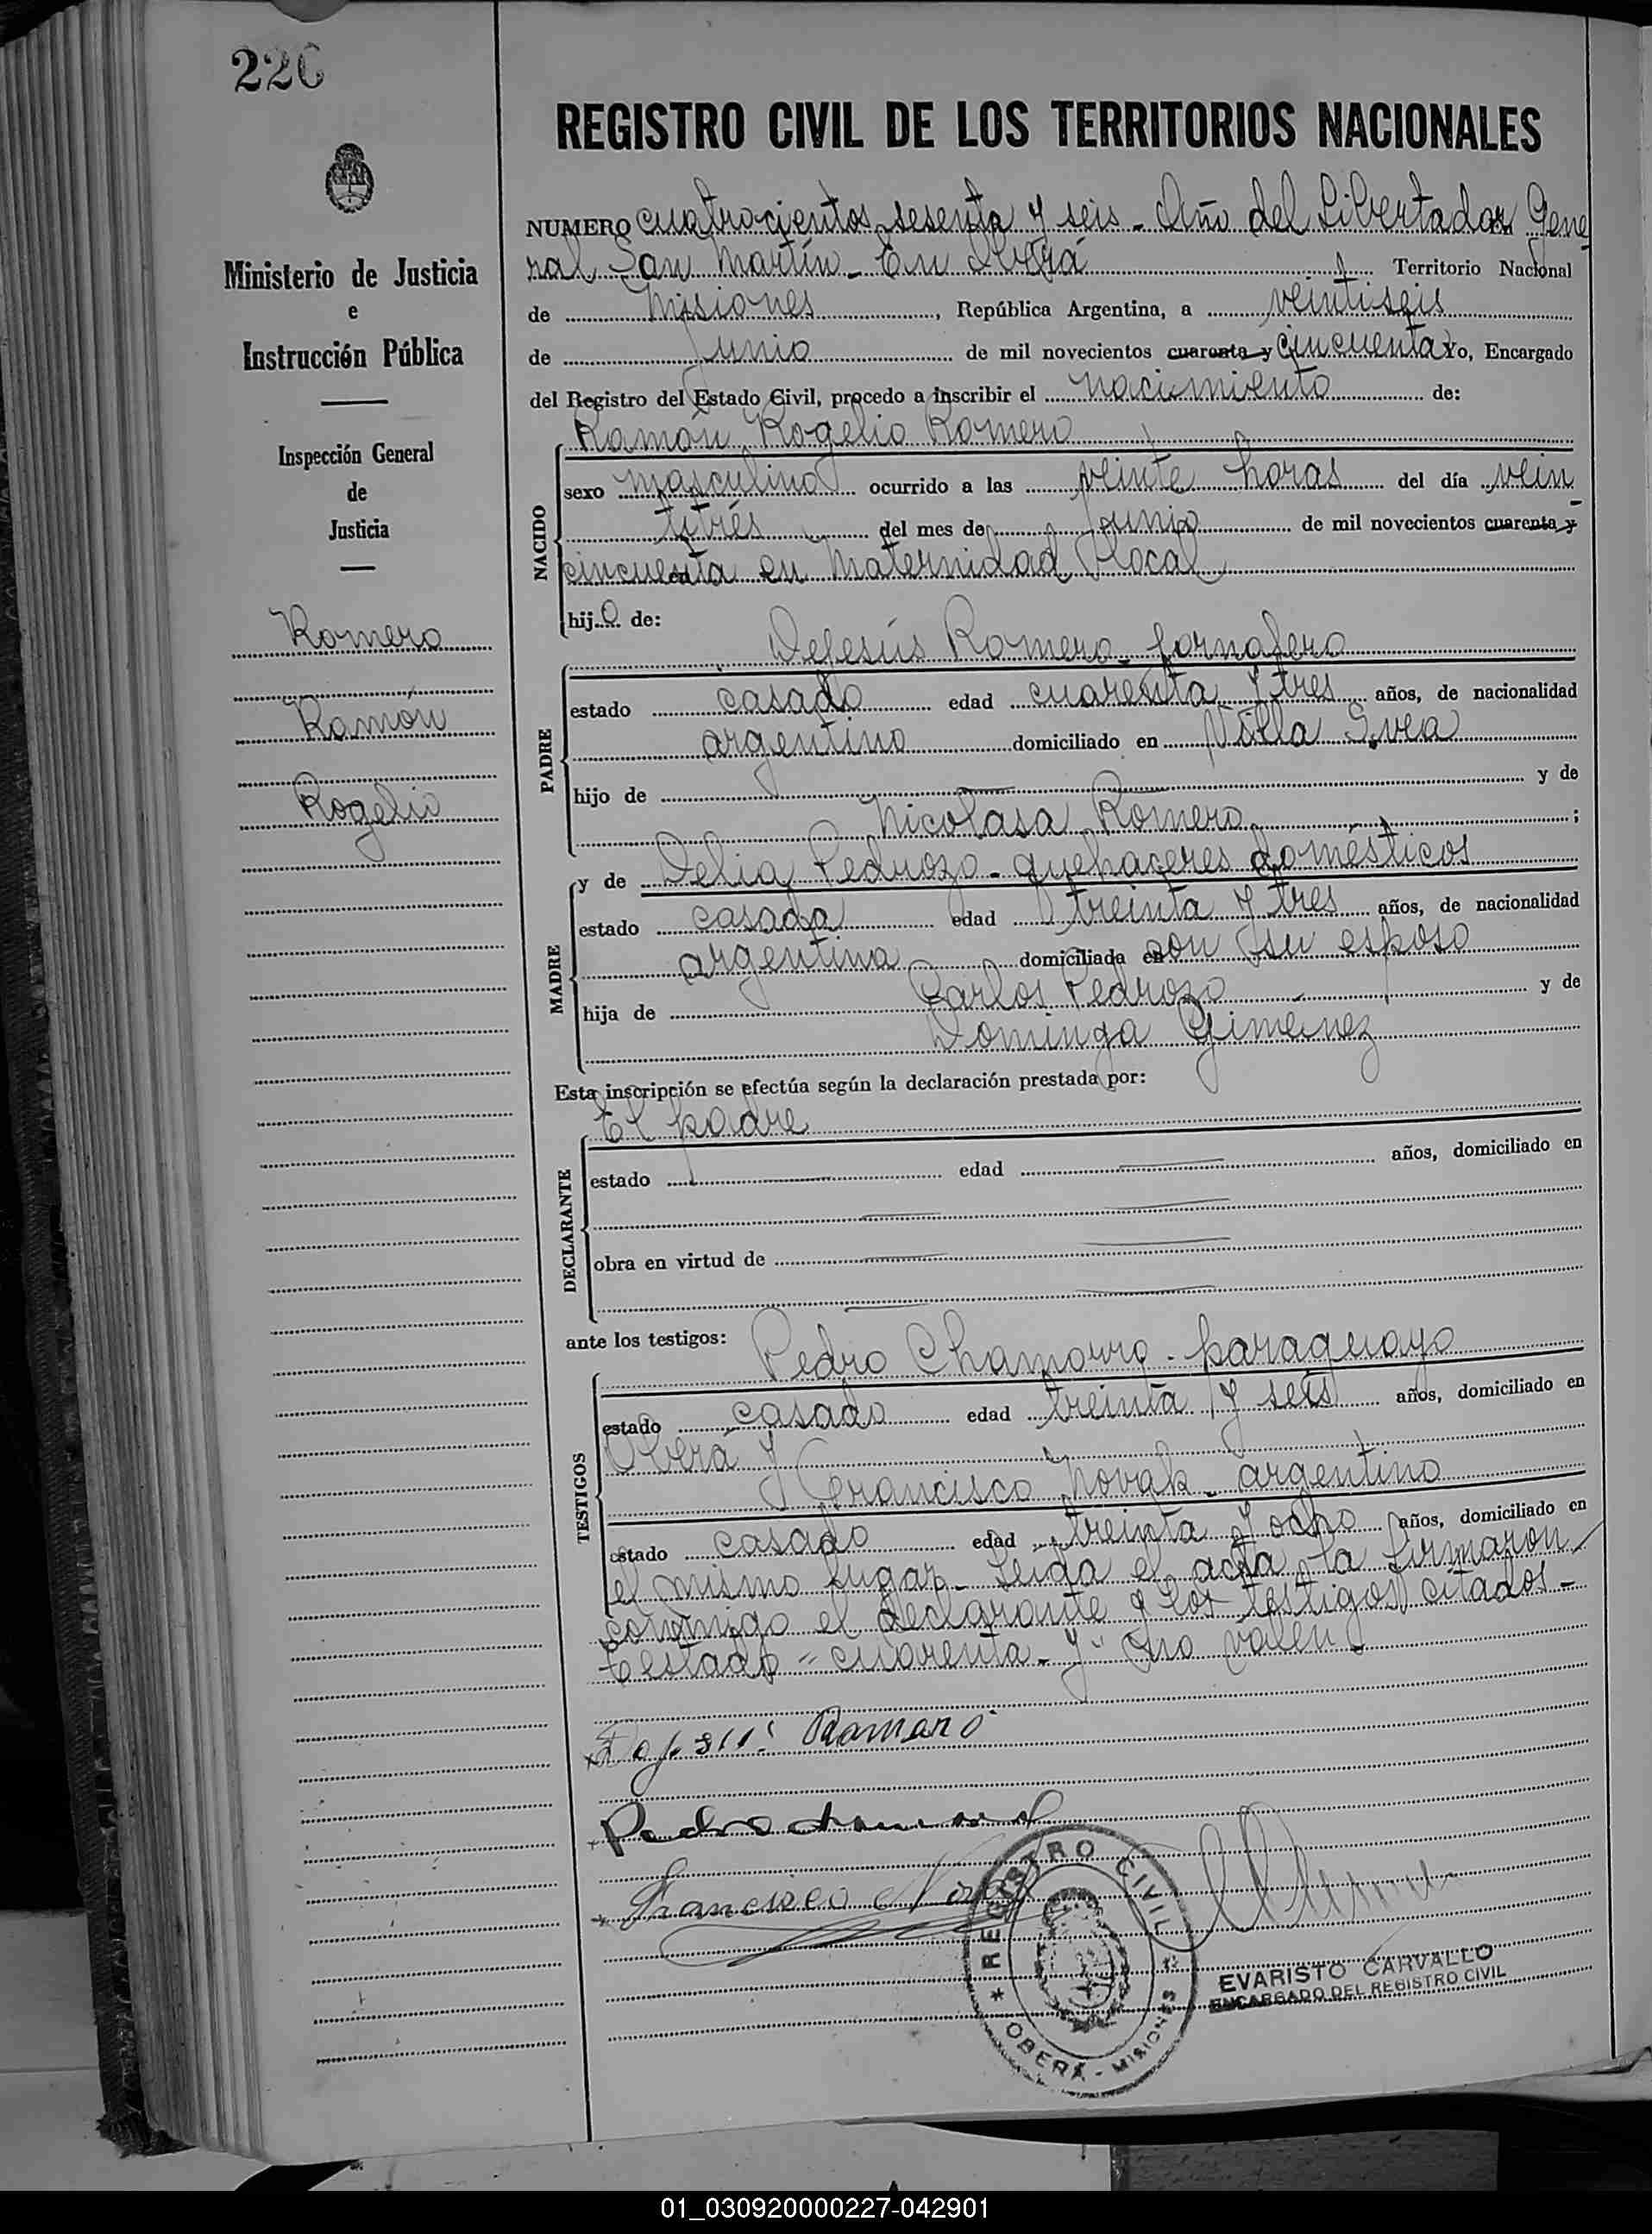 226
REGISTRO CIVIL DE LOS TERRITORIOS NACIONALES
Ministerio de Justicia
e
Instrucción Pública
Inspección General
de
Justicia
Romero
Ramón
Rogelio
NUMERO cuatrocientos sesenta y seis - Año del Libertador Gene
ral San Martín - En Oberá Territorio Nacional
de Misiones, República Argentina, a veintiseis
de Junio de mil novecientos cuarenta y cincuenta Yo, Encargado
del Registro del Estado Civil, procedo a inscribir el nacimiento de:
Ramón Rogelio Romero
NACIDO
sexo masculino ocurrido a las veinte horas del día vein
titrés del mes de Junio de mil novecientos cuarenta y
cincuenta en Maternidad Local
hijo de:
Dejesús Romero - jornalero
PADRE
estado casado edad cuarenta y tres años, de nacionalidad
argentino domiciliado en Villa Svea
hijo de y de
Nicolasa Romero ;
y de Delia Pedrozo - quehaceres domésticos
MADRE
estado casada edad treinta y tres años, de nacionalidad
argentina domiciliada en con su esposo
hija de Carlos Pedrozo y de
Dominga Gimenez
Esta inscripción se efectúa según la declaración prestada por:
El padre
DECLARANTE
estado edad años, domiciliado en
obra en virtud de
ante los testigos:
Pedro Chamorro - paraguayo
TESTIGOS
estado casado edad treinta y seis años, domiciliado en
Oberá y
Francisco Novak - argentino
estado casado edad treinta y ocho años, domiciliado en
el mismo lugar - Leida el acta la firmaron
conmigo el declarante y los testigos citados -
testado "cuarenta - y" no valen
Pedro
Francisco Novak
REGISTRO CIVIL
OBERÁ - MISIONES
EVARISTO CARVALLO
ENCARGADO DEL REGISTRO CIVIL
01_030920000227-042901